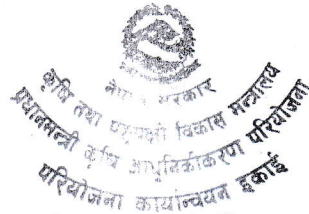 नेपाल सरकार
कृषि तथा पशुपन्छी विकास मन्त्रालय
प्रधानमन्त्री कृषि आधुनिकीकरण परियोजना
परियोजना कार्यान्वयन इकाई